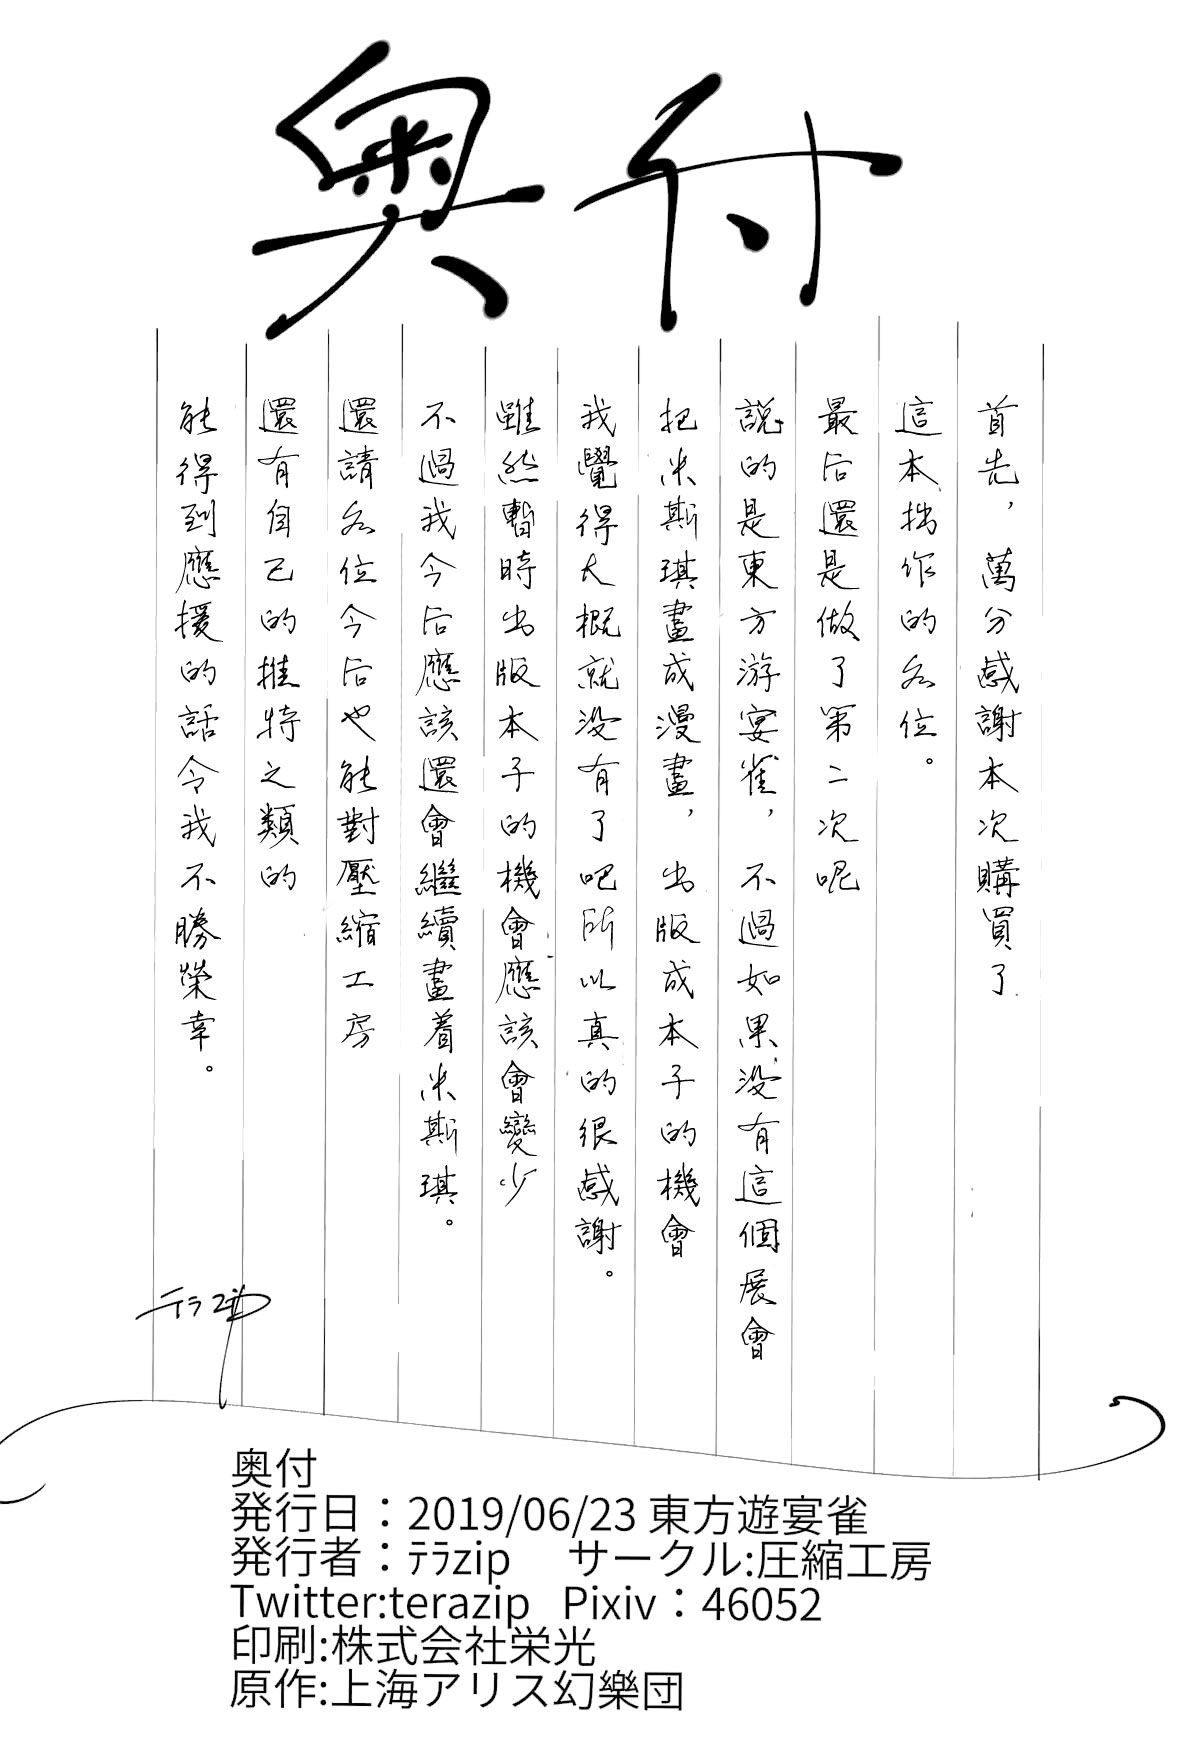 奥付
首先，萬分感謝本次購買了
這本拙作的各位。
最后還是做了第二次呢
説的是東方游宴雀，不過如果没有這個展會
把米斯琪畫成漫畫，出版成本子的機會
我覺得大概就没有了吧所以真的很感謝。
雖然暫時出版本子的機會應該會變少
不過我今后應該還會繼續畫着米斯琪。
還請各位今后也能對壓縮工房
還有自己的推特之類的
能得到應援的話令我不勝榮幸。
テラzip
奥付
発行日：2019/06/23 東方遊宴雀
発行者：ﾃﾗzip　サークル:圧縮工房
Twitter:terazip Pixiv：46052
印刷:株式会社栄光
原作:上海アリス幻樂団